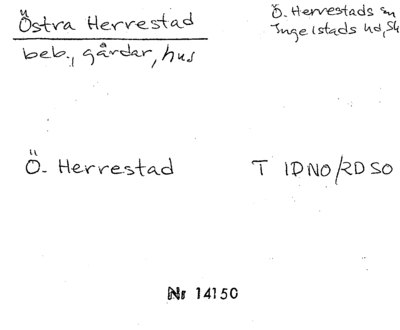 Östra Herrestad
beb., gårdar, hus
Ö. Herrestads sn
Ingelstads hd, Sk
Ö. Herrestad
T IDNO/RDSO
Nr 14150